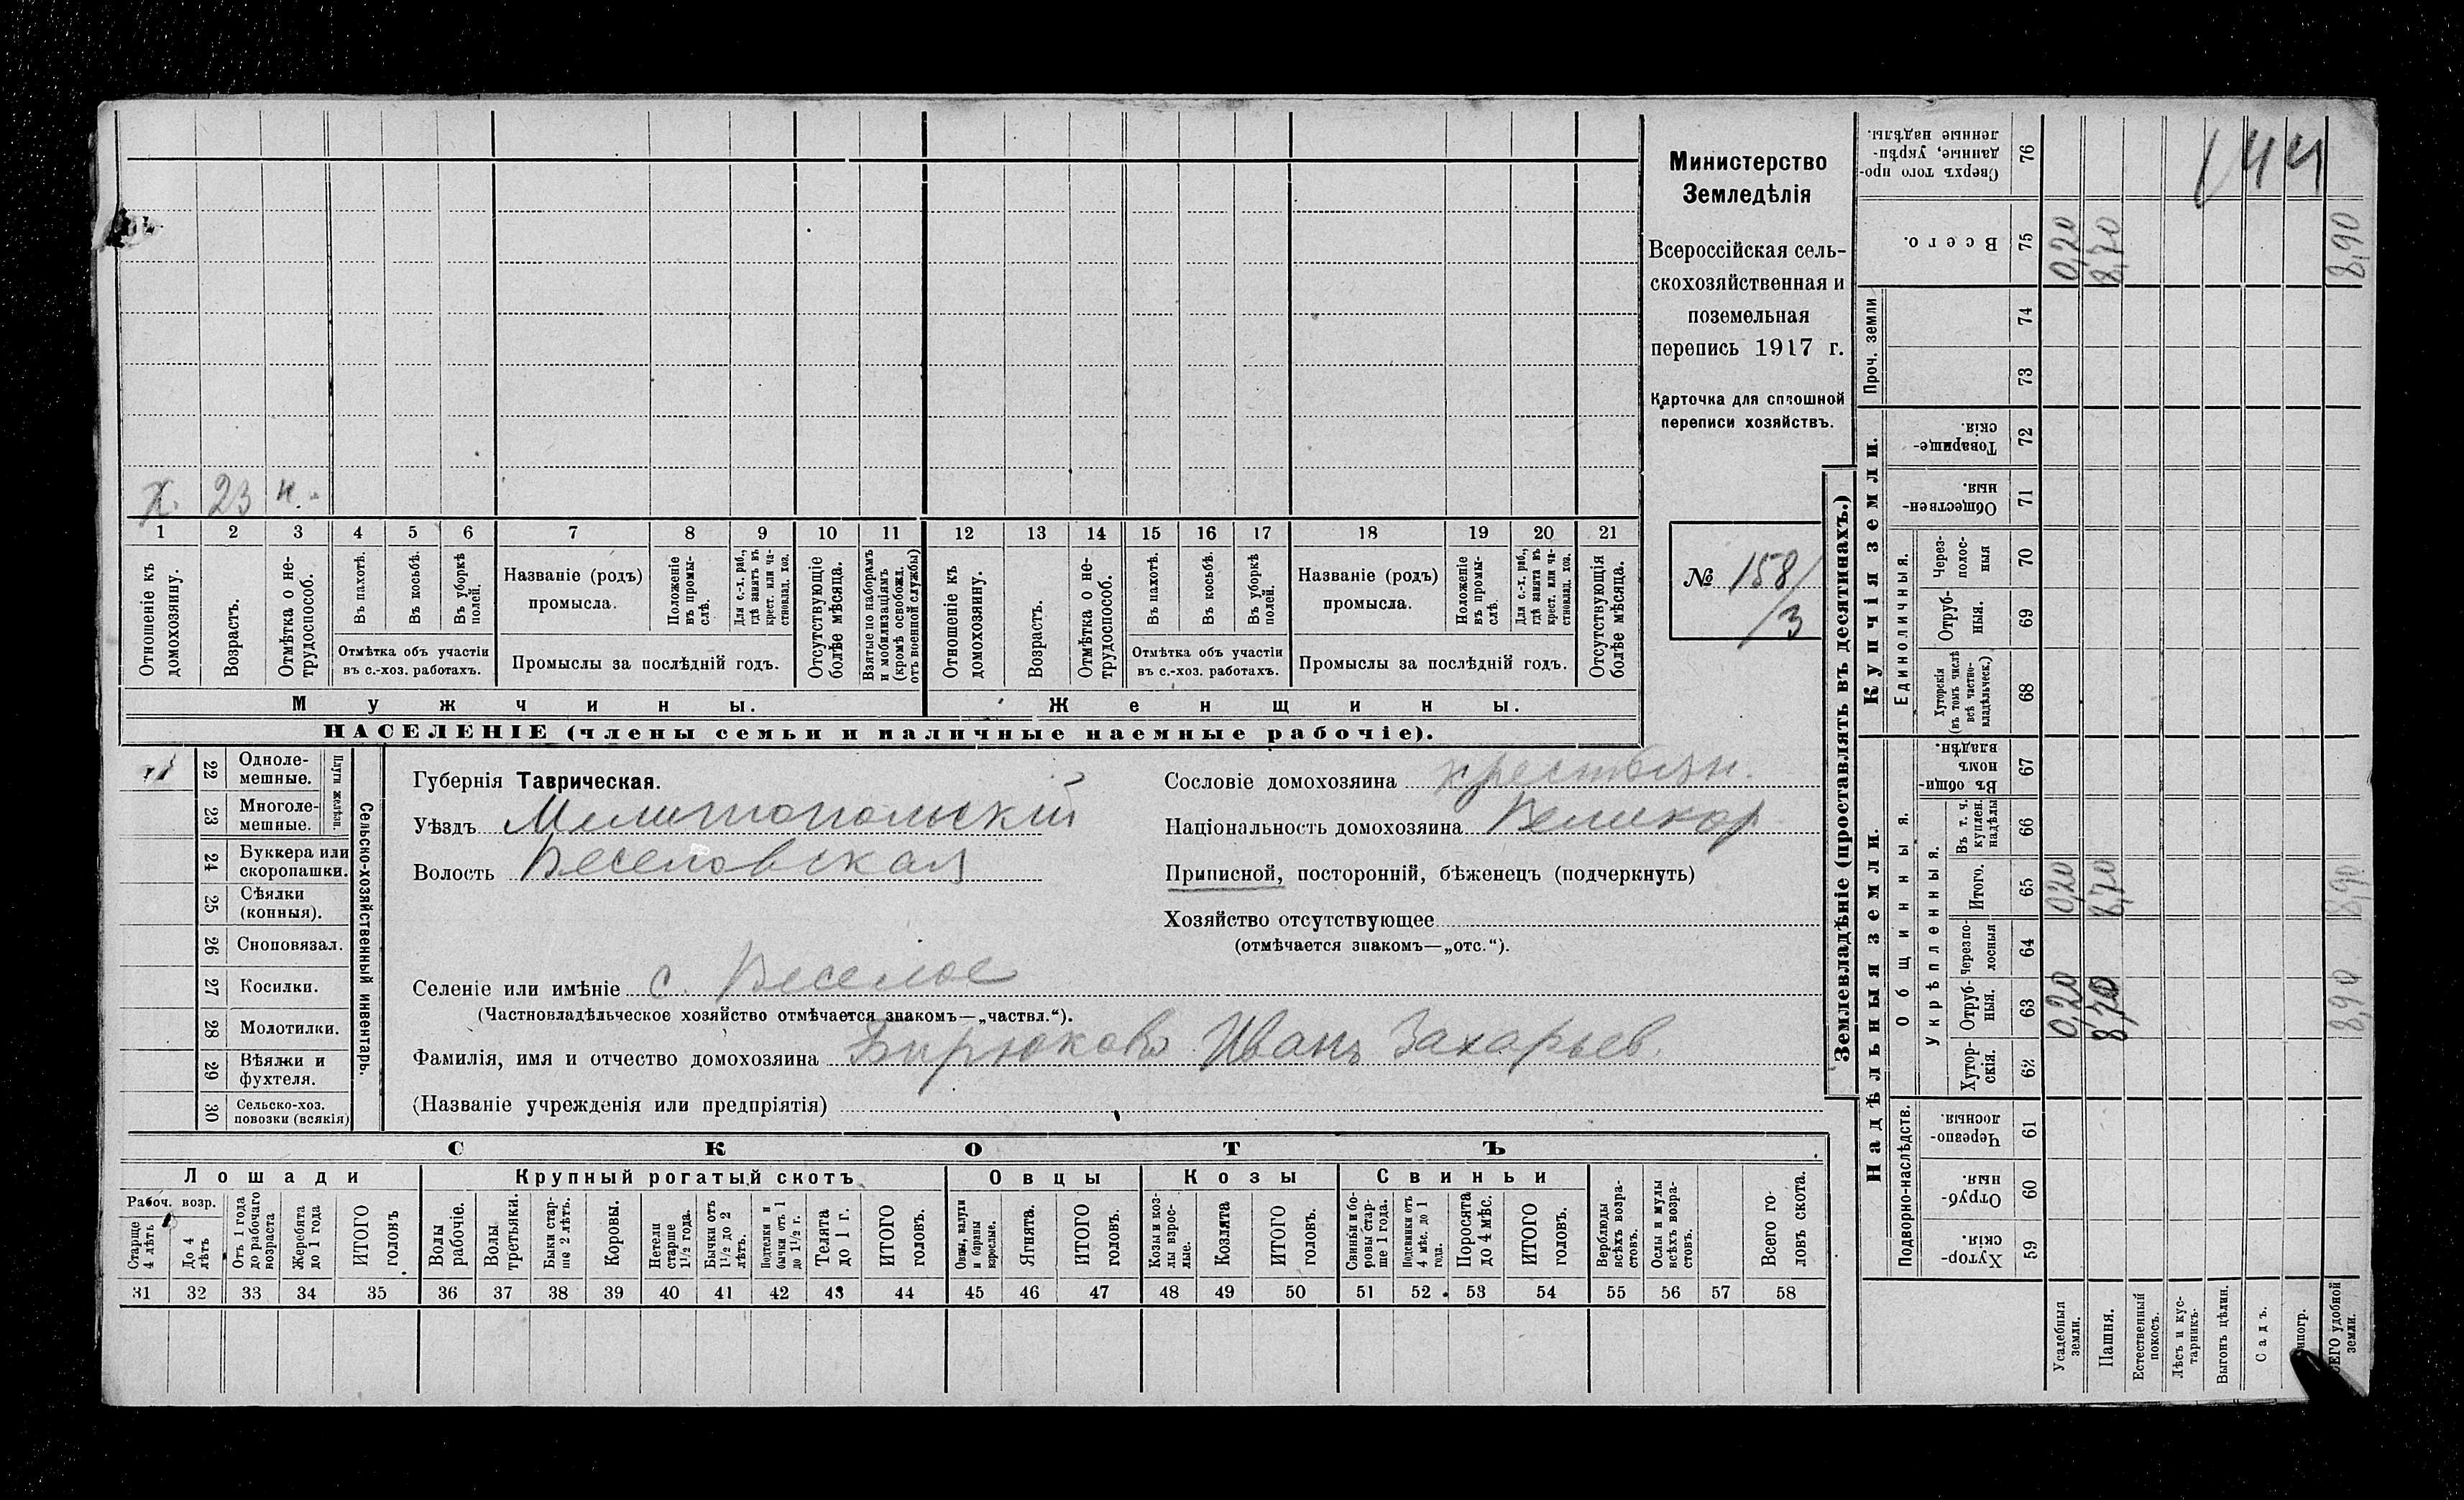 Х. 23 н.
1 2 3 4 5 6 7 8 9 10 11 12 13 14 15 16 17 18 19 20 21
Отношеніе къ домохозяину.
Возрастъ.
Отмѣтка о не-трудоспособ.
Въ пахотѣ.
Въ косьбѣ.
Въ уборкѣ полей.
Отмѣтка объ участіи
въ с.-хоз. работахъ.
Названіе (родъ)
промысла.
Положеніе въ промы-слѣ.
Для с.-х. раб., гдѣ занятъ въ крест. или ча-стновлад. хоз.
Промыслы за послѣдній годъ.
Отсутствующіе болѣе мѣсяца.
Взятые по наборамъ и мобилизаціямъ (кромѣ освобожд. отъ военной службы)
Отношеніе къ домохозяину.
Возрастъ.
Отмѣтка о не-трудоспособ.
Въ пахотѣ.
Въ косьбѣ.
Въ уборкѣ полей.
Отмѣтка объ участіи
въ с.-хоз. работахъ.
Названіе (родъ)
промысла.
Положеніе въ промы-слѣ.
Для с.-х. раб., гдѣ занята въ крест. или ча-стновлад. хоз.
Промыслы за послѣдній годъ.
Отсутствующія болѣе мѣсяца.
Мужчины.
Женщины.
НАСЕЛЕНІЕ (члены семьи и наличные наемные рабочіе).
Министерство
Земледѣлія
Всероссійская сель-
скохозяйственная и
поземельная
перепись 1917 г.
Карточка для сплошной
переписи хозяйствъ.
№ 158/
/3
22 Одноле-мешные.
23 Многоле-мешные.
Плуги желѣзн.
24 Буккера или скоропашки.
25 Сѣялки (конныя).
26 Сноповязал.
27 Косилки.
28 Молотилки.
29 Вѣялки и фухтеля.
30 Сельско-хоз. повозки (всякія)
Сельско-хозяйственный инвентарь.
Губернія Таврическая.
Уѣздъ Мелитопольскій
Волость Веселовская
Сословіе домохозяина крестьян.
Національность домохозяина Великор
Приписной, посторонній, бѣженецъ (подчеркнуть)
Хозяйство отсутствующее
(отмѣчается знакомъ—„отс.“).
Селеніе или имѣніе с. Веселое
(Частновладѣльческое хозяйство отмѣчается знакомъ—„частвл.“).
Фамилія, имя и отчество домохозяина Бирюковъ Иванъ Захарьев.
(Названіе учрежденія или предпріятія)
СКОТЪ
Лошади
Крупный рогатый скотъ
Овцы
Козы
Свиньи
Рабоч. возр.
Старше 4 лѣтъ
До 4 лѣтъ
Отъ 1 года до рабочаго возраста
Жеребята до 1 года
ИТОГО головъ
Волы рабочіе.
Волы третьяки.
Быки стар-ше 2 лѣтъ.
Коровы.
Нетели старше 1½ года.
Бычки отъ 1½ до 2 лѣтъ.
Подтелки и бычки отъ 1 до 1½ г.
Телята до 1 г.
ИТОГО головъ.
Овцы, валухи и бараны взрослые.
Ягнята.
ИТОГО головъ.
Козы и коз-лы взрос-лые.
Козлята
ИТОГО головъ.
Свиньи и бо-ровы стар-ше 1 года.
Подсвинки отъ 4 мѣс. до 1 года.
Поросята до 4 мѣс.
ИТОГО головъ.
Верблюды всѣхъ возра-стовъ.
Ослы и мулы всѣхъ возра-стовъ.
Всего го-ловъ скота.
31 32 33 34 35 36 37 38 39 40 41 42 43 44 45 46 47 48 49 50 51 52 53 54 55 56 57 58
Землевладѣніе (проставлять въ десятинахъ.)
Сверхъ того про-данные, укрѣп-ленные надѣлы. 76
Всего. 75 0,20 8,70 8,90
Проч. земли
74
73
Купчія земли.
Товарище-скія. 72
Обществен-ныя. 71
Единоличныя.
Через-полос-ныя 70
Отруб-ныя. 69
Хуторскія (въ томъ числѣ всѣ частно-владѣльческ.) 68
Надѣльныя земли.
Общинныя.
Въ общи-номъ владѣн. 67
Укрѣпленныя.
Въ т. ч. куплен. надѣлы 66
Итого. 65 0,20 8,70 8,90
Черезпо-лосныя 64
Отруб-ныя. 63 0,20 8,70 8,90
Хутор-скія. 62
Подворно-наслѣдств.
Черезпо-лосныя 61
Отруб-ныя. 60
Хутор-скія. 59
Усадебныя земли.
Пашня.
Естественный покосъ.
Лѣсъ и кус-тарникъ.
Выгонъ цѣлин.
Садъ.
удобной земли.